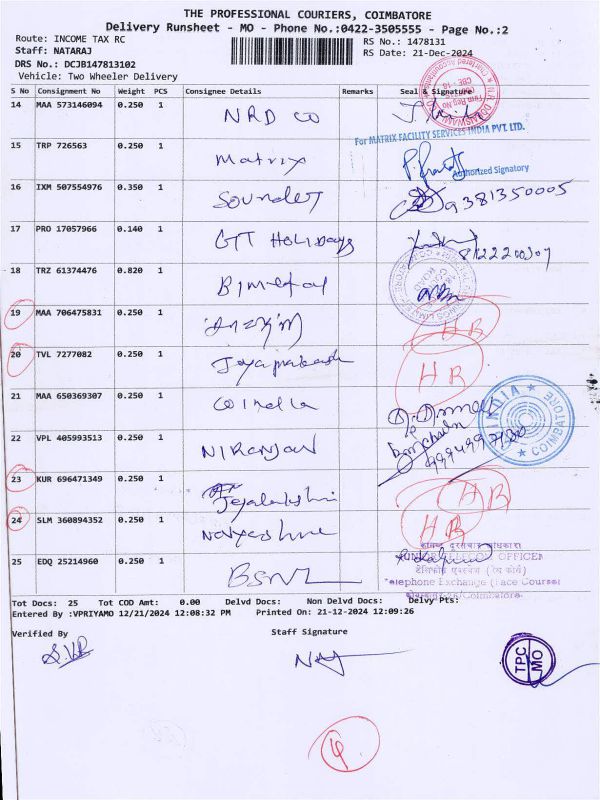 THE PROFESSIONAL COURIERS, COIMBATORE
Delivery Runsheet - MO - Phone No.:0422-3505555 - Page No.:2
Route: INCOME TAX RC
RS No.: 1478131
Staff: NATARAJ
RS Date: 21-Dec-2024
DRS No.: DCJB147813102
Vehicle: Two Wheeler Delivery
S No Consignment No Weight PCS Consignee Details Remarks Seal & Signature
14 MAA 573146094 0.250 1 NRD CO
For MATRIX FACILITY SERVICES INDIA PVT. LTD.
15 TRP 726563 0.250 1 Matrix
Authorized Signatory
16 IXM 507554976 0.350 1 9381350005
17 PRO 17057966 0.140 1 GTT HOLIDAYS
18 TRZ 61374476 0.820 1
19 MAA 706475831 0.250 1 HB
20 TVL 7277082 0.250 1 Jeyaprakash HB
21 MAA 650369307 0.250 1
INDIA
COIMBATORE
22 VPL 405993513 0.250 1 NIRANJAN
23 KUR 696471349 0.250 1 Jeyalakshmi HB
24 SLM 360894352 0.250 1 HB
25 EDQ 25214960 0.250 1 BSNL
JUNIOR TELECOM OFFICER
Telephone Exchange (Race Course)
Coimbatore
Tot Docs: 25 Tot COD Amt: 0.00 Delvd Docs: Non Delvd Docs: Delvy Pts:
Entered By :VPRIYAMO 12/21/2024 12:08:32 PM Printed On: 21-12-2024 12:09:26
Verified By Staff Signature
TPC
MO
4